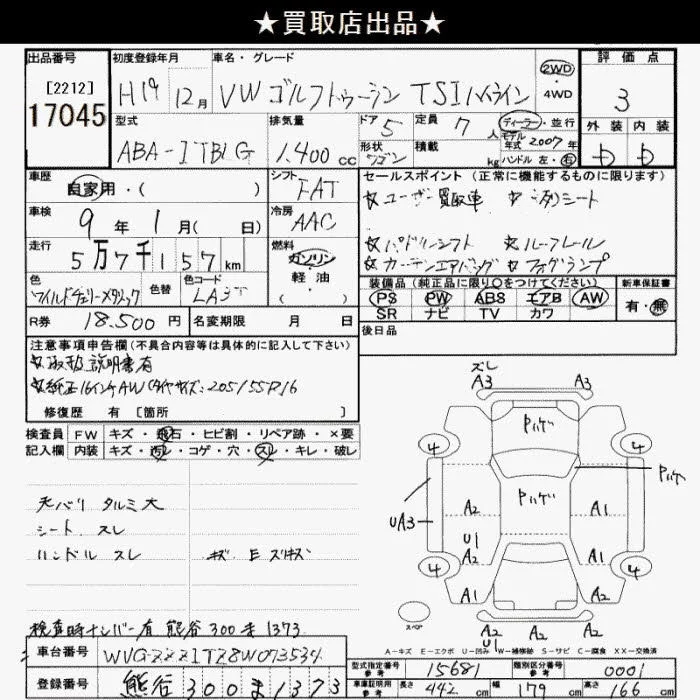 ★買取店出品★
出品番号 初度登録年月 車名・グレード 評価点
[2212] 17045 H19年 12月 VW ゴルフトゥーラン TSI ハイライン 2WD・4WD 3
型式 排気量 ドア 定員 ディーラー・並行 外装 内装
ABA-1TBLG 1,400cc 5 7人 モデル年式 2007年
形状 ワゴン 積載 kg ハンドル 左・右
車歴 シフト セールスポイント(正常に機能するものに限ります)
自家用・( ) FAT ☆ユーザー買取車 ☆3列シート
車検 冷房
9年1月(日) AAC ☆パドルシフト ☆ルーフレール
走行 燃料 ☆カーテンエアバッグ ☆フォグランプ
5万7千157km ガソリン・軽油・( )
色 色替 色コード 装備品(純正品に限り○をつけてください) 新車保証書
ワイルドチェリーメタリック LA3T PS PW ABS エアB AW 有・無
SR ナビ TV カワ
R券 18,500円 名変期限 月 日 後日品
注意事項申告欄(不具合内容等は具体的に記入して下さい)
☆取扱説明書有
☆純正16インチAW(タイヤサイズ:205/55R16
修復歴 有[箇所 ]
検査員 FW キズ・飛石・ヒビ割・リペア跡・×要
記入欄 内装 キズ・汚レ・コゲ・穴・スレ・キレ・破レ
天バリ タルミ大
シート スレ
ハンドル スレ
検査時ナンバー有 熊谷300ま1373
車台番号 WVGZZZ1TZ8W073534
登録番号 熊谷300ま1373
ズレ
A3 A3
Pハゲ
4 4
Pハゲ
Pハゲ
UA3 A2 A1
U1
A2 A1
4 4
A1 A2
スペア
A2 A2 A2
U1
A-キズ E-エクボ U-凹み W-補修跡 S-サビ C-腐食 XX-交換済
型式指定番号 参考 15681 類別区分番号 参考 0001
車庫証明用 参考 長さ 442cm 幅 179cm 高さ 166cm